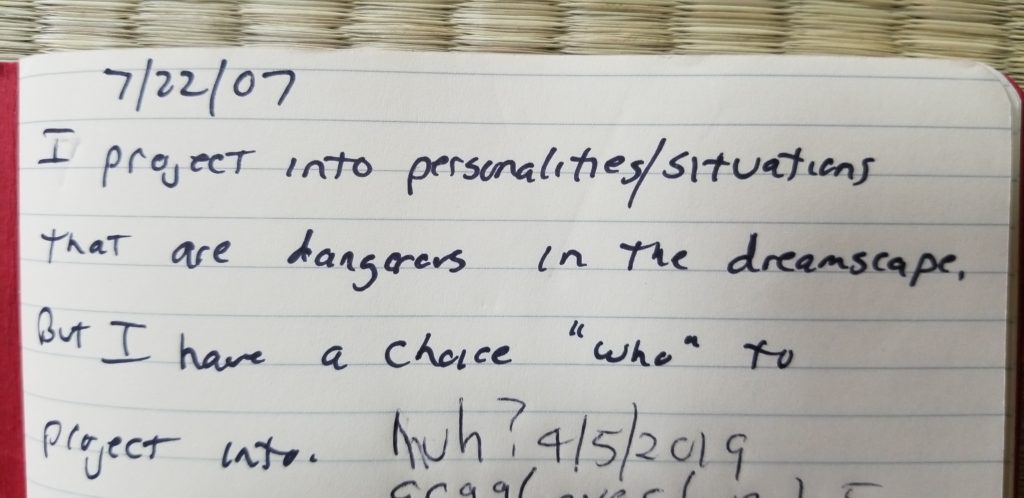 7/22/07
I project into personalities/situations
that are dangerous in the dreamscape.
But I have a choice "who" to
project into. huh? 4/5/2019